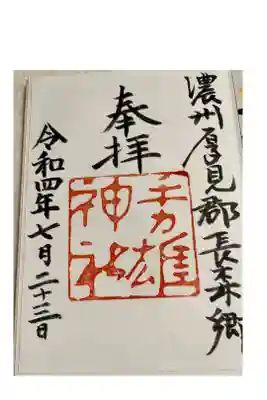 濃州厚見郡長森郷
奉拝
手力雄
神社
令和四年七月二十三日